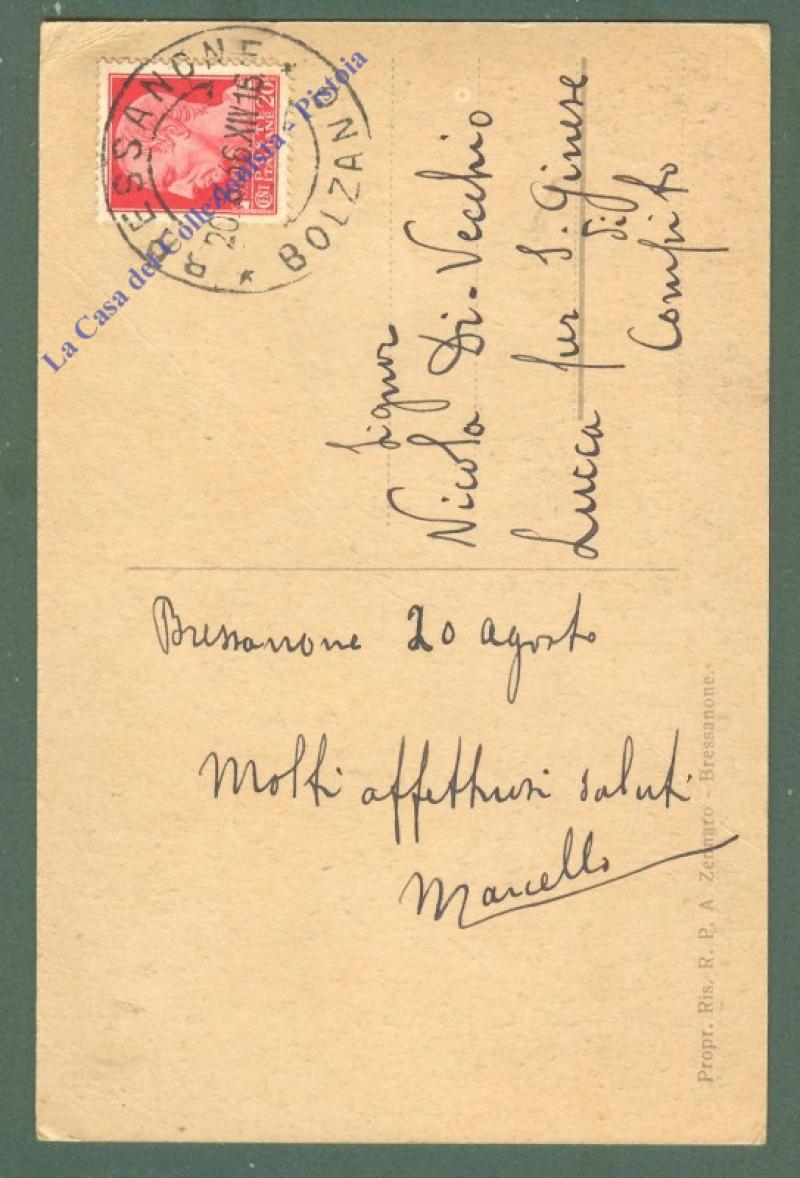 BRESSANONE
* BOLZANO *
La Casa del Collezionista - Pistoia
Signor
Nicola Di-Vecchio
Lucca per S. Ginese
di
Compito
Bressanone 20 agosto
Molti affettuosi saluti
Marcello
Propr. Ris. R. P. A Zennaro - Bressanone.